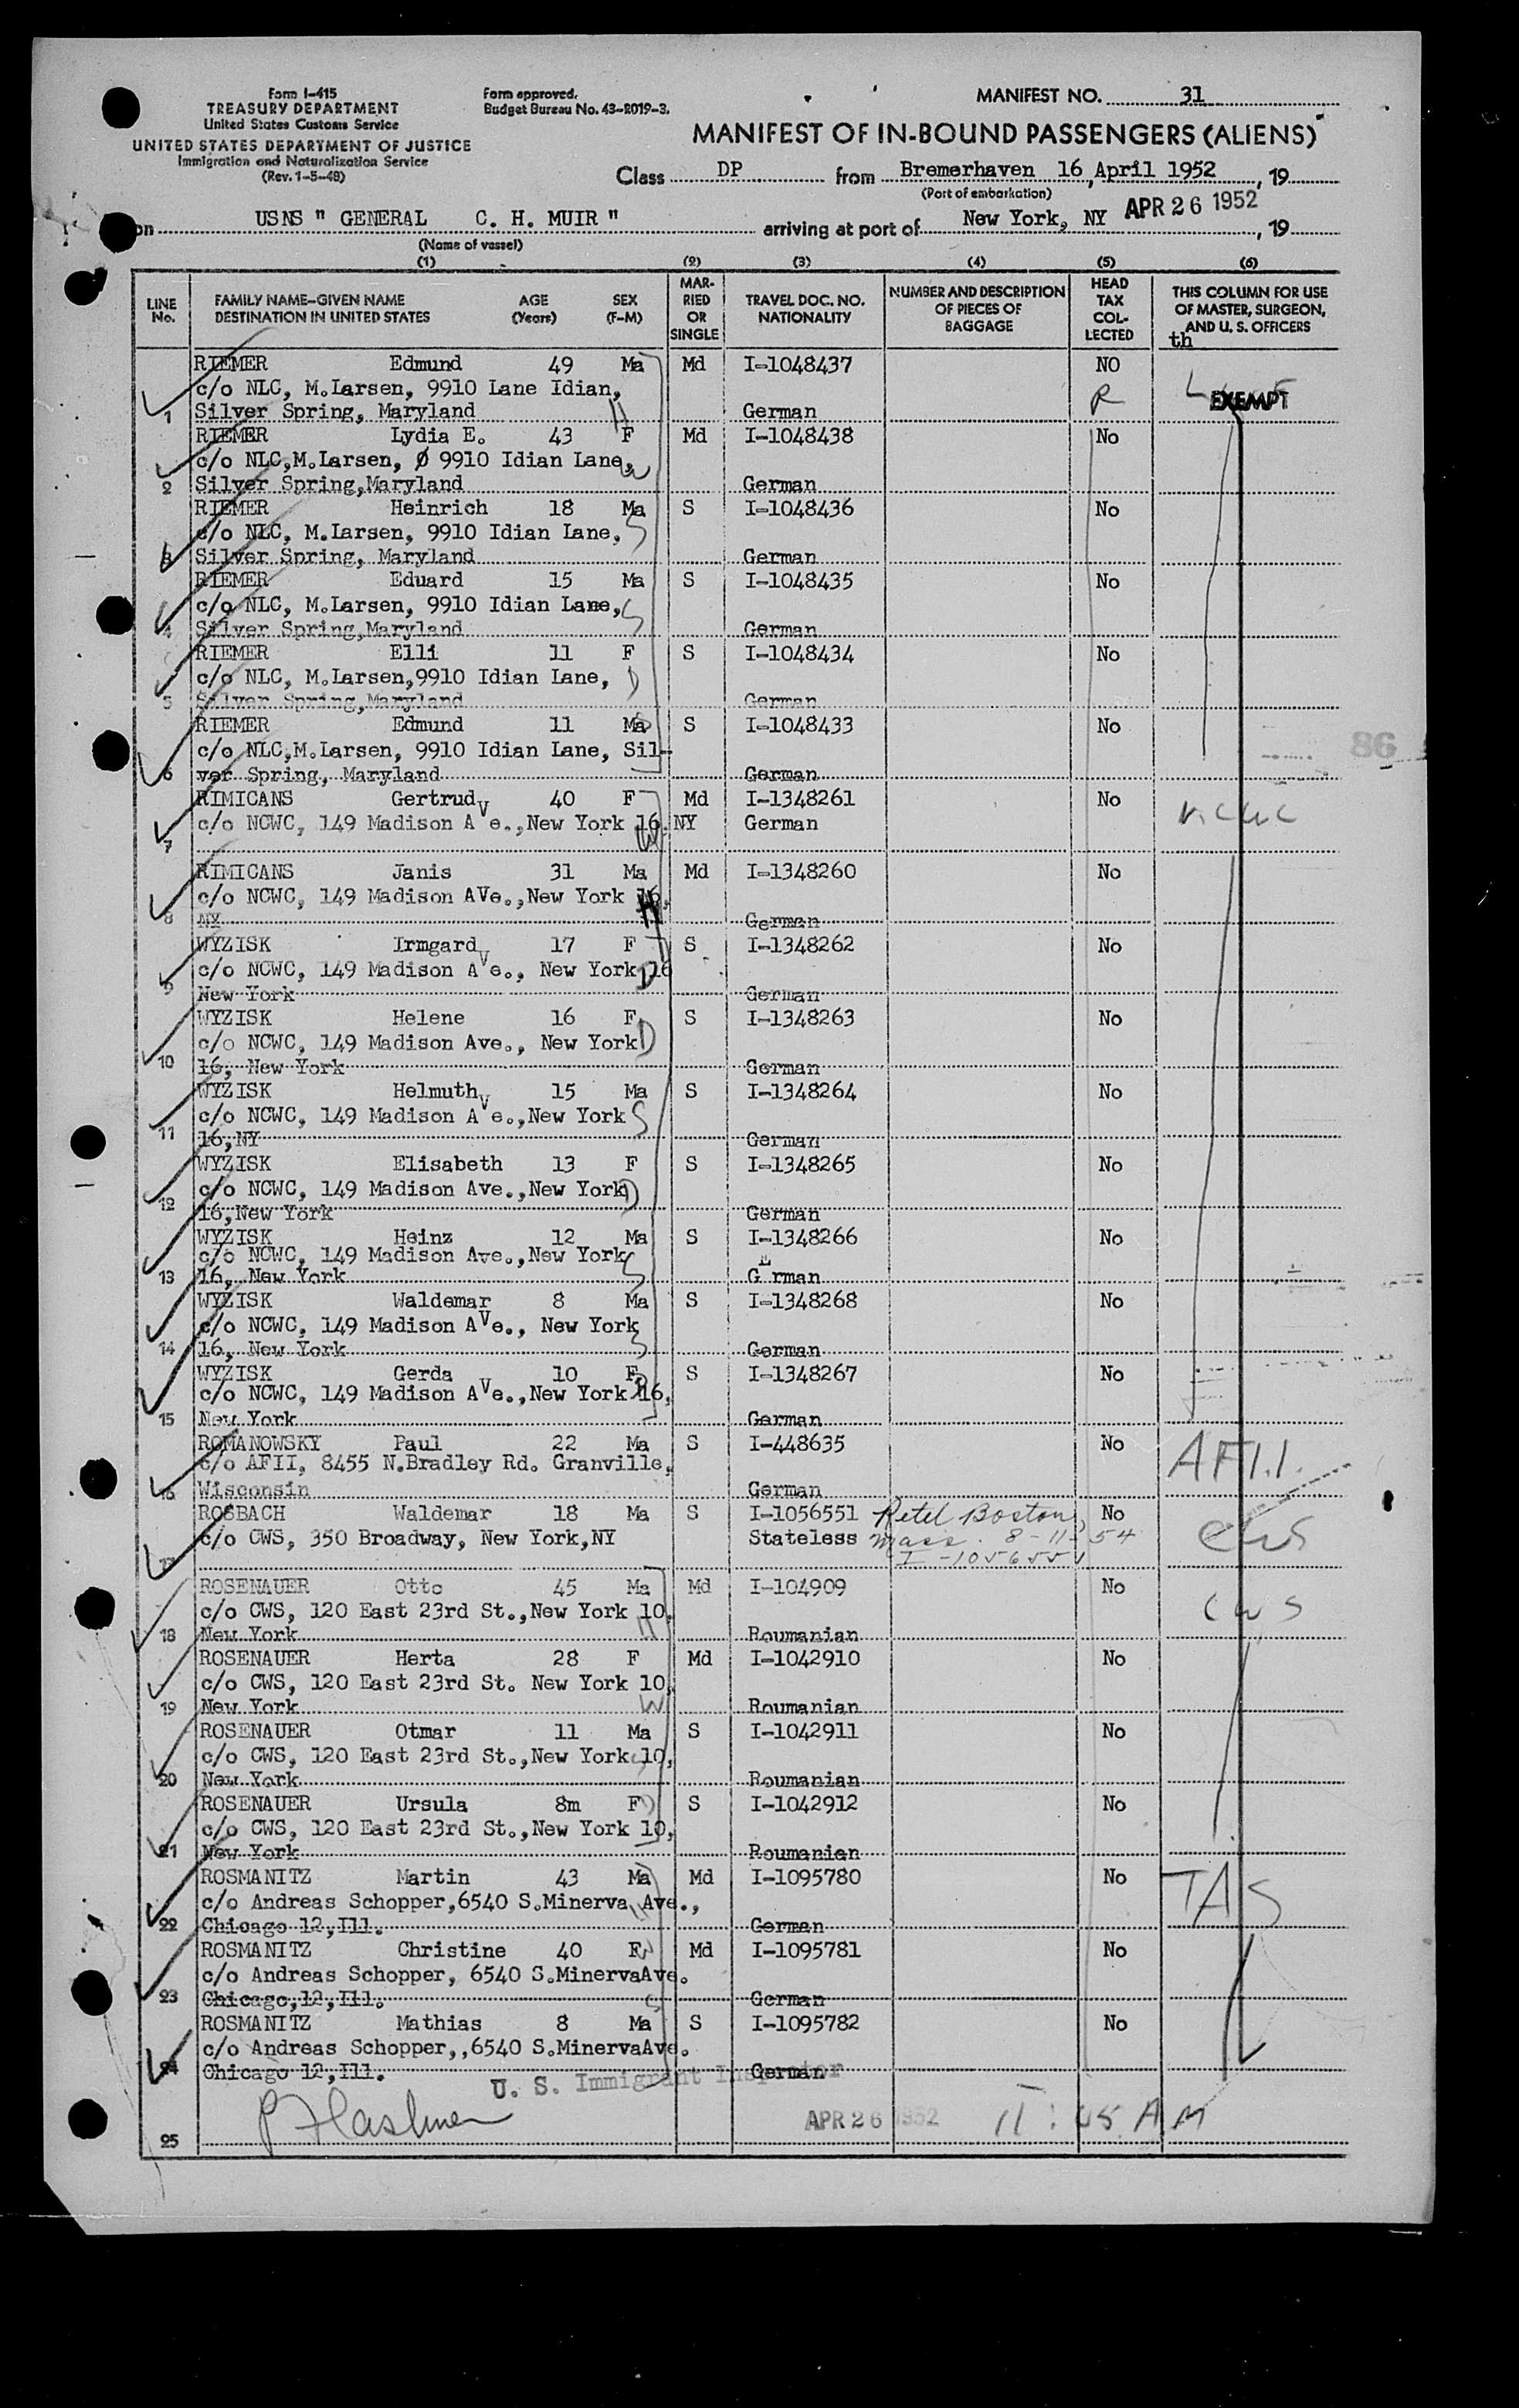 Form I-415
TREASURY DEPARTMENT
United States Customs Service
UNITED STATES DEPARTMENT OF JUSTICE
Immigration and Naturalization Service
(Rev. 1-5-48)
Form approved.
Budget Bureau No. 43-R019-3.
MANIFEST NO. 31
MANIFEST OF IN-BOUND PASSENGERS (ALIENS)
Class DP from Bremerhaven 16, April 1952, 19
(Port of embarkation)
on USNS " GENERAL C. H. MUIR " arriving at port of New York, NY APR 26 1952, 19
(Name of vessel)
(1) (2) (3) (4) (5) (6)
LINE No. FAMILY NAME-GIVEN NAME DESTINATION IN UNITED STATES AGE (Years) SEX (F-M) MARRIED OR SINGLE TRAVEL DOC. NO. NATIONALITY NUMBER AND DESCRIPTION OF PIECES OF BAGGAGE HEAD TAX COLLECTED THIS COLUMN FOR USE OF MASTER, SURGEON, AND U. S. OFFICERS
th
RIEMER Edmund 49 Ma Md I-1048437 NO
c/o NLC, M.Larsen, 9910 Lane Idian, R EXEMPT
1 Silver Spring, Maryland H German
RIEMER Lydia E. 43 F Md I-1048438 No
c/o NLC,M.Larsen, Ø 9910 Idian Lane, W
2 Silver Spring,Maryland German
RIEMER Heinrich 18 Ma S I-1048436 No
c/o NLC, M.Larsen, 9910 Idian Lane, S
3 Silver Spring, Maryland German
RIEMER Eduard 15 Ma S I-1048435 No
c/o NLC, M.Larsen, 9910 Idian Lane, S
4 Silver Spring,Maryland German
RIEMER Elli 11 F S I-1048434 No
c/o NLC, M.Larsen,9910 Idian Lane, D
5 Silver Spring,Maryland German
RIEMER Edmund 11 Ma S I-1048433 No
c/o NLC,M.Larsen, 9910 Idian Lane, Sil- 86
6 ver Spring, Maryland German
RIMICANS Gertrud 40 F Md I-1348261 No
c/o NCWC, 149 Madison Ave.,New York 16,NY German NCWC
7 W
RIMICANS Janis 31 Ma Md I-1348260 No
c/o NCWC, 149 Madison AVe.,New York 16,
8 NY H German
WYZISK Irmgard 17 F S I-1348262 No
c/o NCWC, 149 Madison Ave., New York 16 D
9 New York German
WYZISK Helene 16 F S I-1348263 No
c/o NCWC, 149 Madison Ave., New York D
10 16, New York German
WYZISK Helmuth 15 Ma S I-1348264 No
c/o NCWC, 149 Madison Ave.,New York S
11 16,NY German
WYZISK Elisabeth 13 F S I-1348265 No
c/o NCWC, 149 Madison Ave.,New York D
12 16,New York German
WYZISK Heinz 12 Ma S I-1348266 No
c/o NCWC, 149 Madison Ave.,New York S
13 16, New York GErman
WYZISK Waldemar 8 Ma S I-1348268 No
c/o NCWC, 149 Madison AVe., New York
14 16, New York S German
WYZISK Gerda 10 F S I-1348267 No
c/o NCWC, 149 Madison AVe.,New York 16, D
15 New York German
ROMANOWSKY Paul 22 Ma S I-448635 No
c/o AFII, 8455 N.Bradley Rd. Granville, AFI.I.
16 Wisconsin German
ROSBACH Waldemar 18 Ma S I-1056551 Retd Boston, No
c/o CWS, 350 Broadway, New York,NY Stateless Mass. 8-11-54 CWS
17 I-1056551
ROSENAUER Otto 45 Ma Md I-104909 No
c/o CWS, 120 East 23rd St.,New York 10, CWS
18 New York H Roumanian
ROSENAUER Herta 28 F Md I-1042910 No
c/o CWS, 120 East 23rd St. New York 10,
19 New York W Roumanian
ROSENAUER Otmar 11 Ma S I-1042911 No
c/o CWS, 120 East 23rd St.,New York 10, S
20 New York Roumanian
ROSENAUER Ursula 8m F D S I-1042912 No
c/o CWS, 120 East 23rd St.,New York 10,
21 New York Roumanian
ROSMANITZ Martin 43 Ma Md I-1095780 No TAS
c/o Andreas Schopper,6540 S.Minerva Ave., H
22 Chicago 12,Ill. German
ROSMANITZ Christine 40 F W Md I-1095781 No
c/o Andreas Schopper, 6540 S.MinervaAve.
23 Chicago,12,Ill. German
ROSMANITZ Mathias 8 Ma S S I-1095782 No
c/o Andreas Schopper,,6540 S.MinervaAve.
24 Chicago 12,Ill. German
U. S. Immigrant Inspector
APR 26 1952 11:05 AM
25